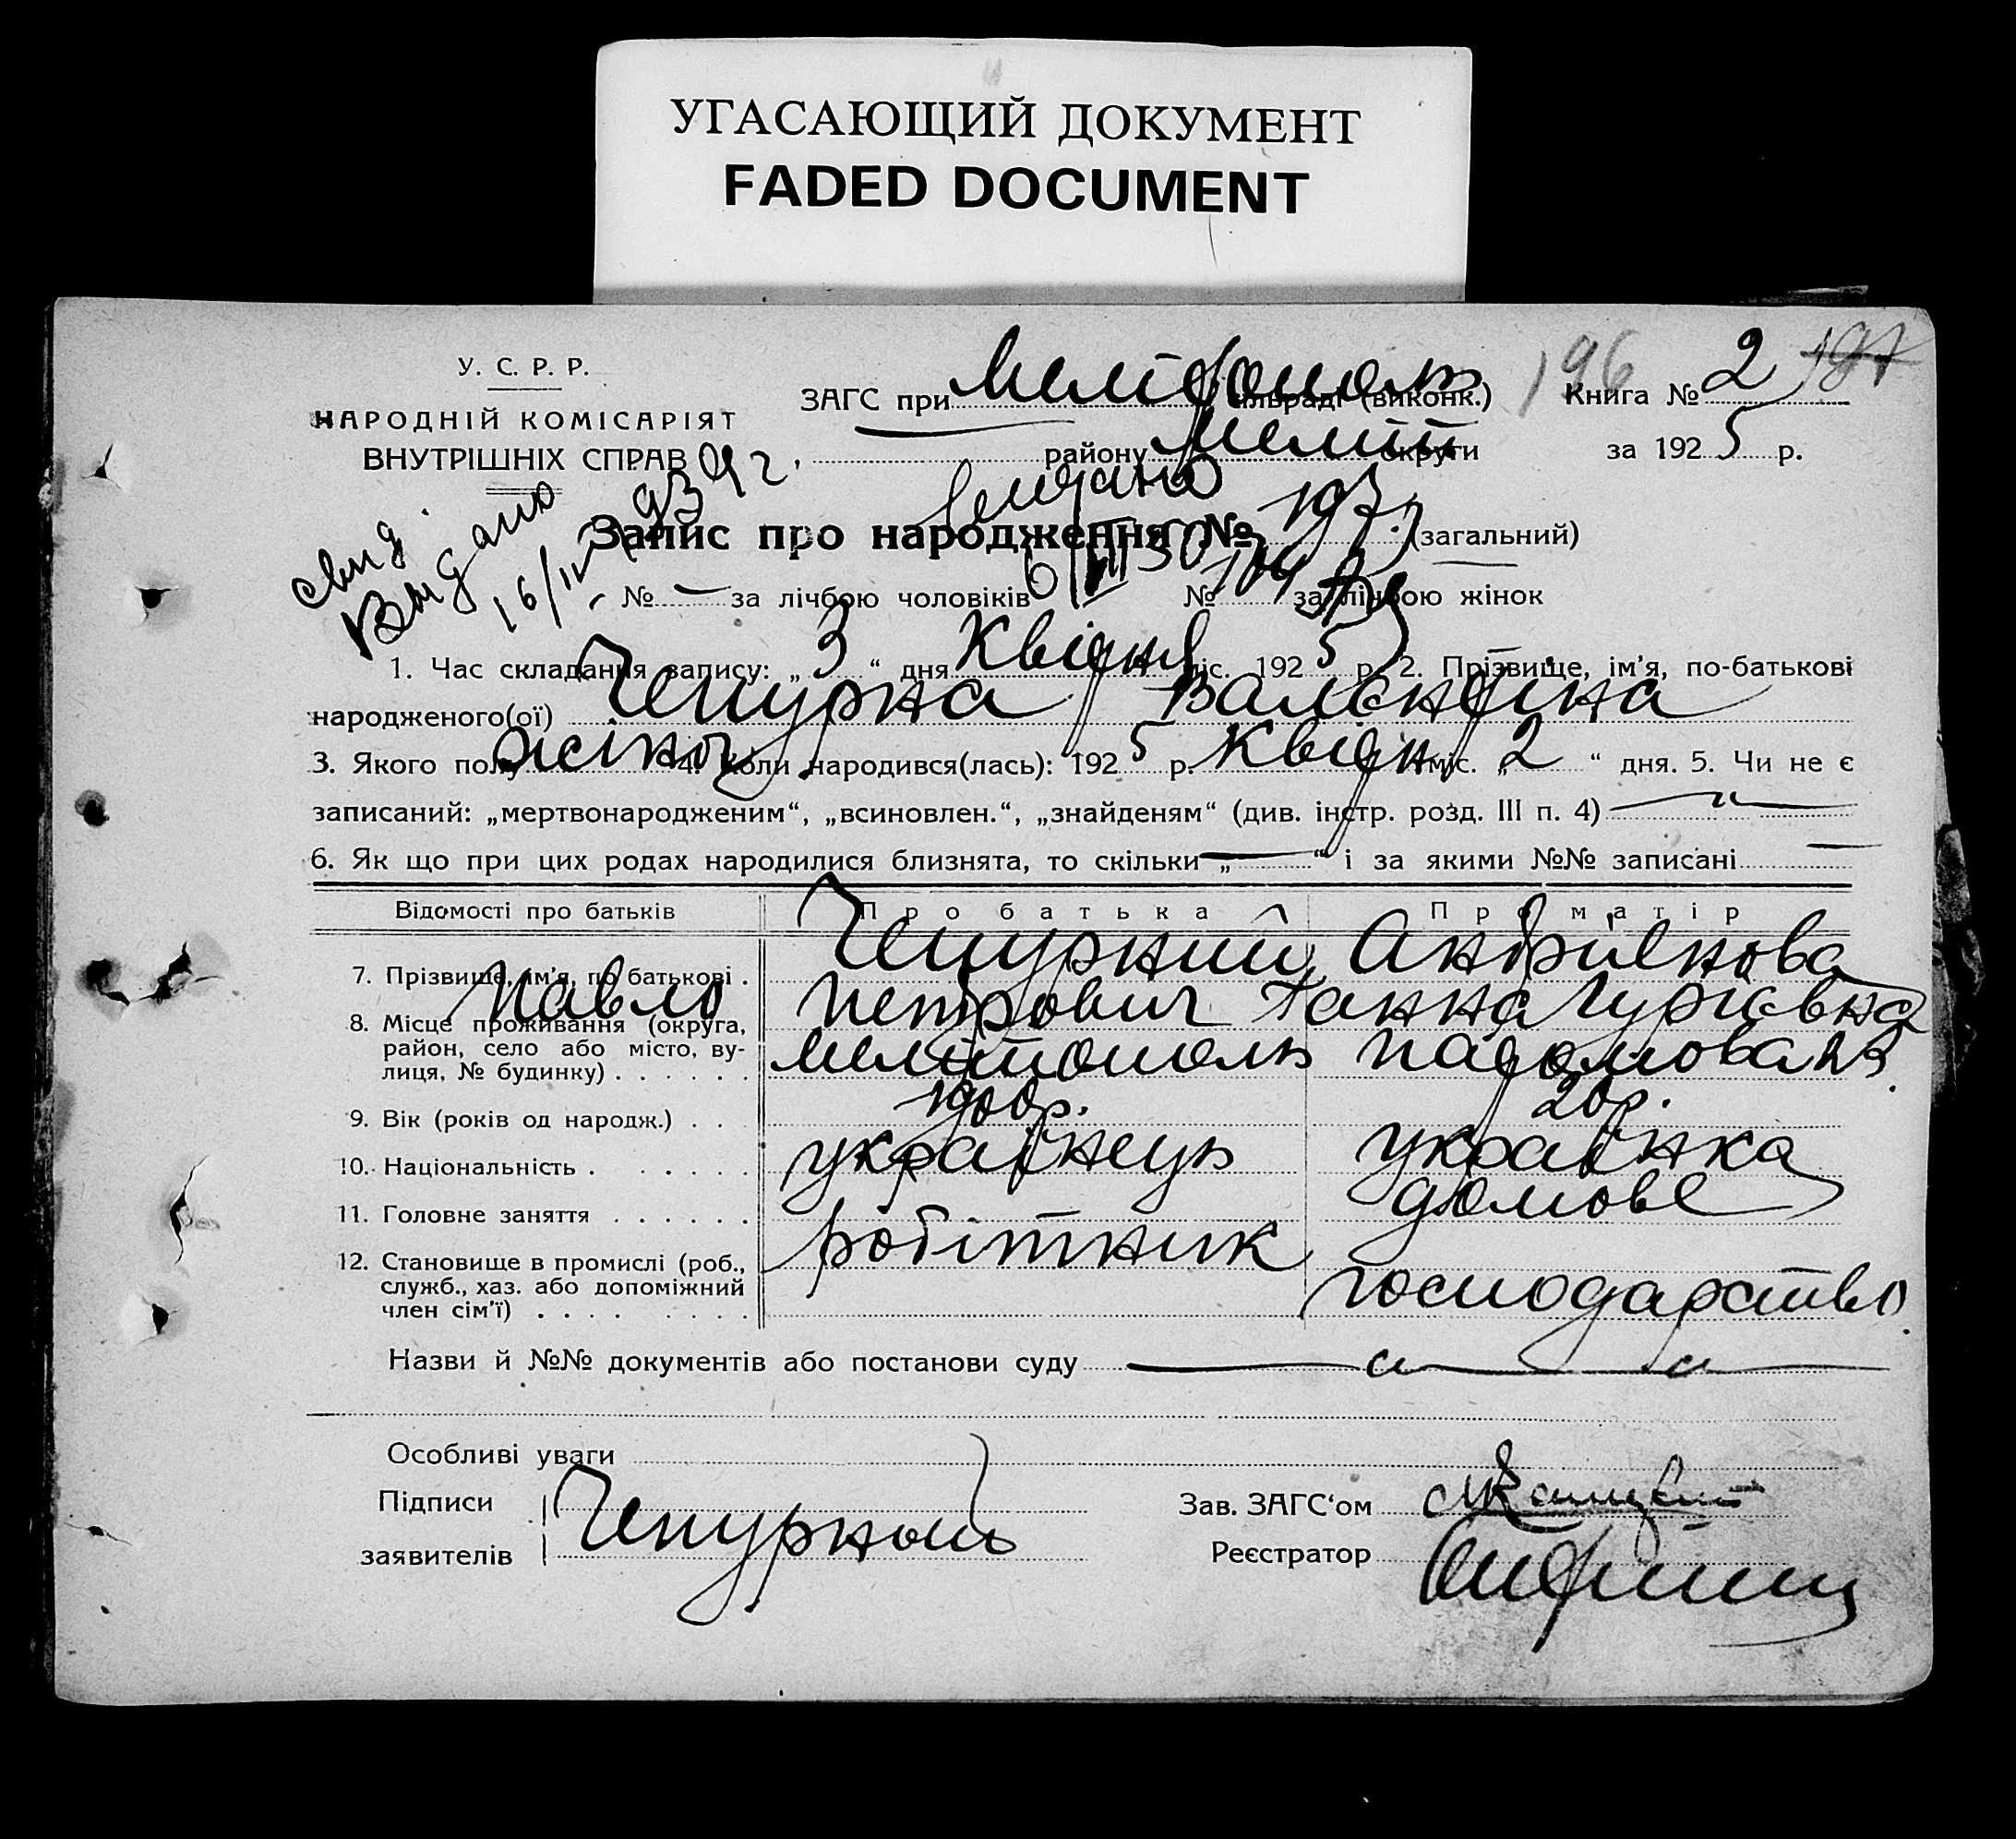 УГАСАЮЩИЙ ДОКУМЕНТ
FADED DOCUMENT
У. С. Р. Р.
НАРОДНІЙ КОМІСАРІЯТ
ВНУТРІШНІХ СПРАВ
ЗАГС при Мелітополь сільраді (виконк.)
196
Книга № 2 197
району Меліт округи
за 1925 р.
свид.
Выдано
16/IV
Запис про народження № 197 (загальний)
№ — за лічбою чоловіків
№ 104 за лічбою жінок
1. Час складання запису: „3“ дня Квітня міс. 1925 р. 2. Прізвище, ім'я, по-батькові
народженого(ої) Чепурна Валентіна
3. Якого полу жіноч. 4. Коли народився(лась): 1925 р. Квітн міс. „2“ дня. 5. Чи не є
записаний: „мертвонародженим“, „всиновлен.“, „знайденям“ (див. інстр. розд. III п. 4) —„—
6. Як що при цих родах народилися близнята, то скільки „—“ і за якими №№ записані —
Відомості про батьків Про батька Про матір
7. Прізвище, ім'я, по батькові . Чепурний Павло Петрович Андріянова Ганна Гургіевна
8. Місце проживання (округа,
район, село або місто, ву-
лиця, № будинку) . . . . . . Мелітополь
9. Вік (років од народж.) . . . 1900р. 20р.
10. Національність . . . . . . українець українка
11. Головне заняття . . . . . . робітник домове
12. Становище в промислі (роб.,
служб., хаз. або допоміжний
член сім'ї) . . . . . . . . господарство.
Назви й №№ документів або постанови суду
Особливі уваги
Підписи
заявителів
Чепурной
Зав. ЗАГС'ом
Реєстратор